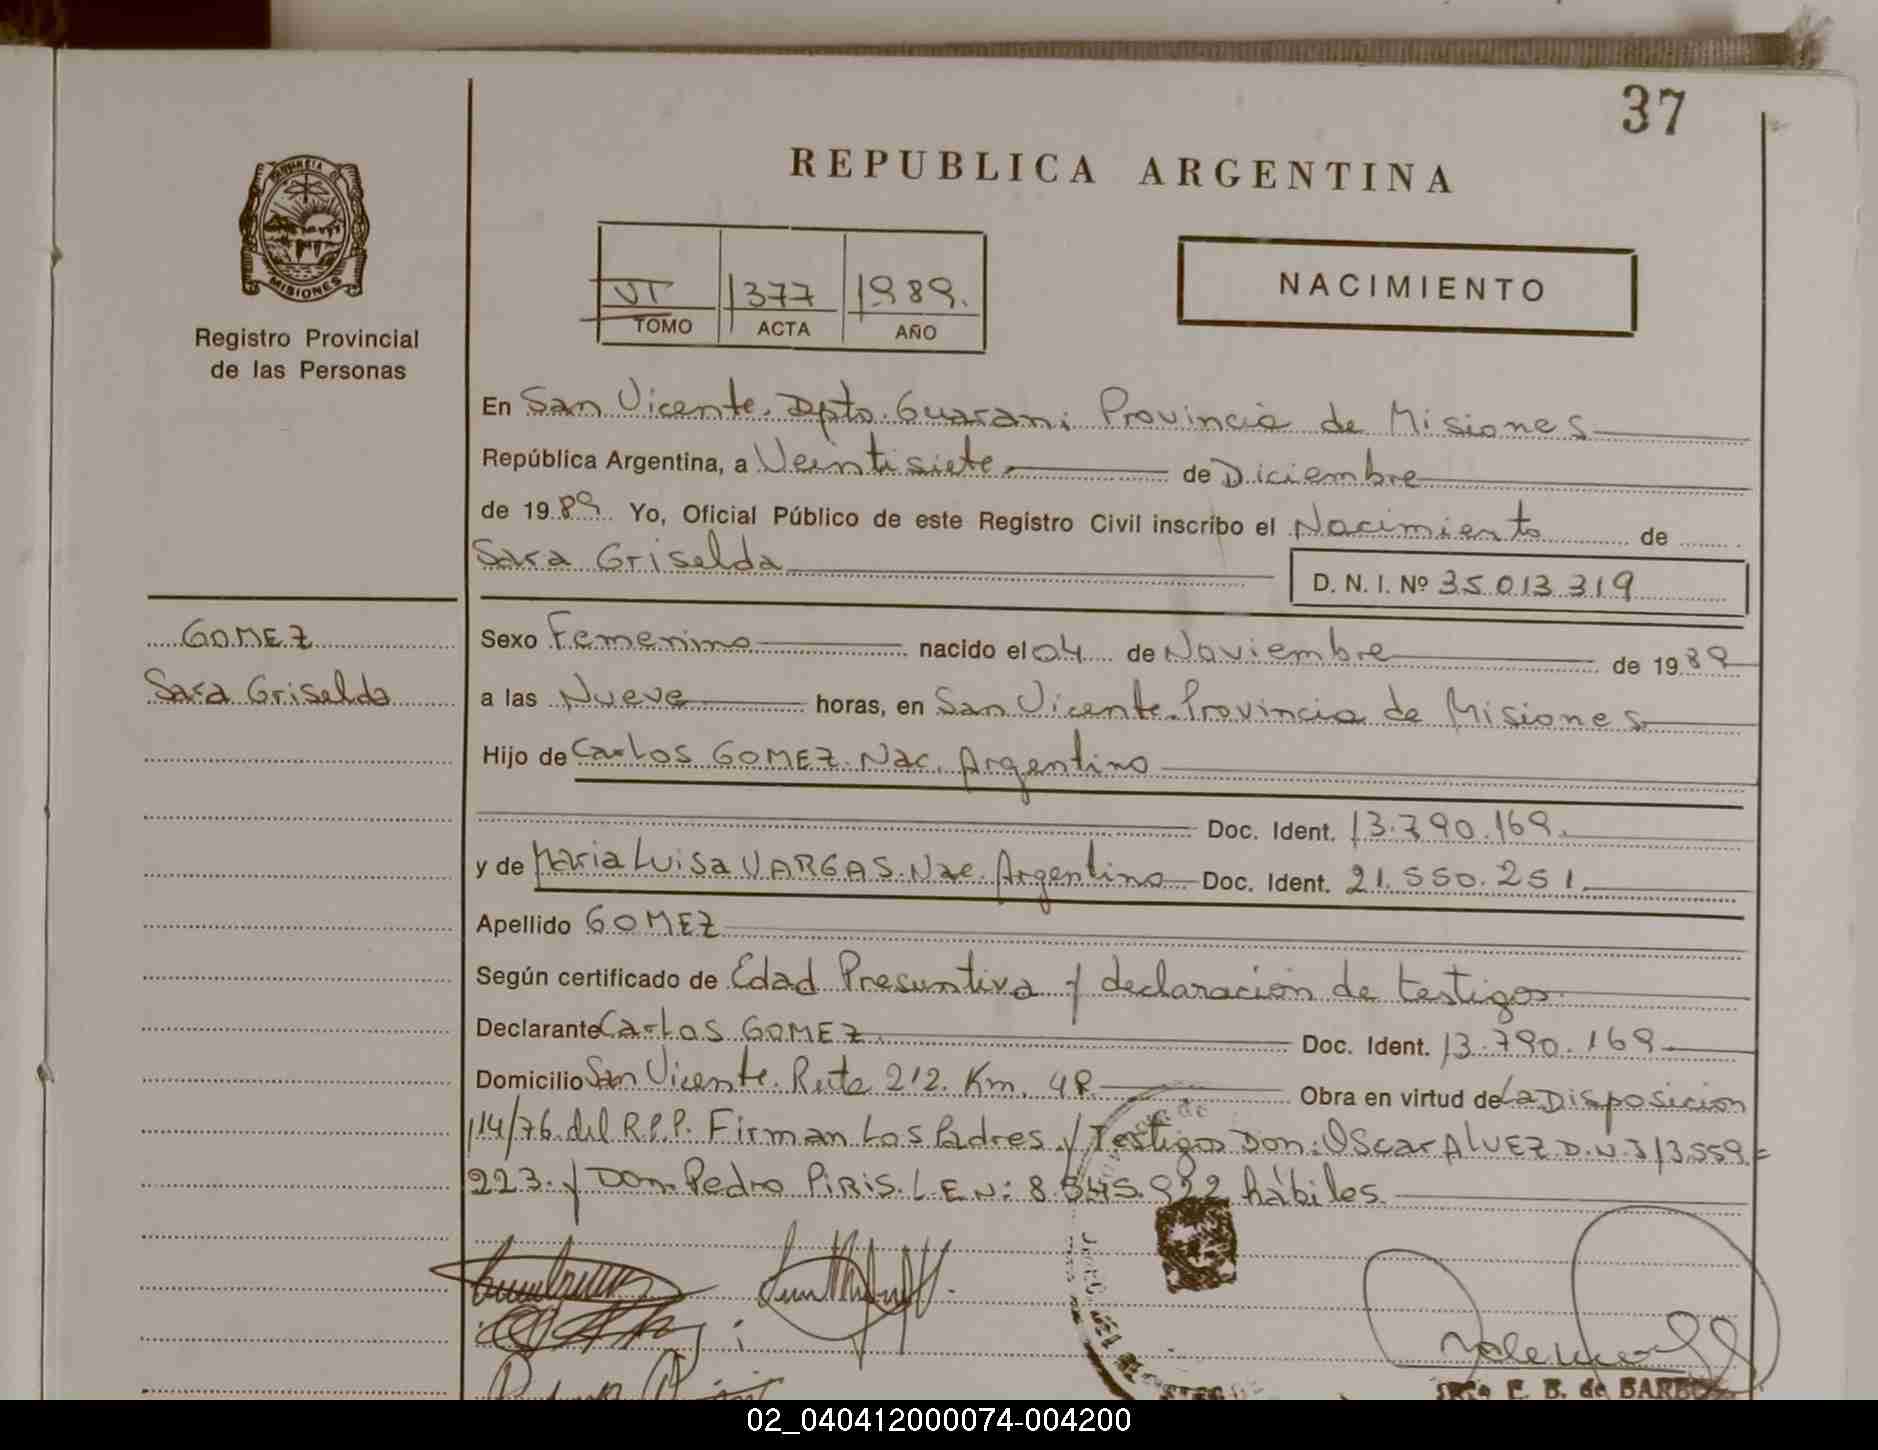 37
REPUBLICA ARGENTINA
MISIONES
Registro Provincial
de las Personas
VI 1377 1989.
TOMO ACTA AÑO
NACIMIENTO
En San Vicente. Dpto. Guarani Provincia de Misiones
República Argentina, a Veintisiete de Diciembre
de 1989. Yo, Oficial Público de este Registro Civil inscribo el Nacimiento de
Sara Griselda D. N. I. Nº 35.013.319
GOMEZ
Sara Griselda
Sexo Femenino nacido el 04 de Noviembre de 1989
a las Nueve horas, en San Vicente. Provincia de Misiones
Hijo de Carlos GOMEZ. Nac. Argentino
Doc. Ident. 13.790.169.
y de Maria Luisa VARGAS. Nac. Argentina Doc. Ident. 21.550.251.
Apellido GOMEZ
Según certificado de Edad Presuntiva y declaración de testigos.
Declarante Carlos GOMEZ. Doc. Ident. 13.790.169.
Domicilio San Vicente. Ruta 212. Km. 48. Obra en virtud de La Disposicion
114/76 del R.P.P. Firman Los Padres y Testigos Don: Oscar ALVEZ D.N.I 13.559=
223. y Don Pedro PIRIS. L.E.N: 8.545.922 hábiles.
E. B. de
02_040412000074-004200